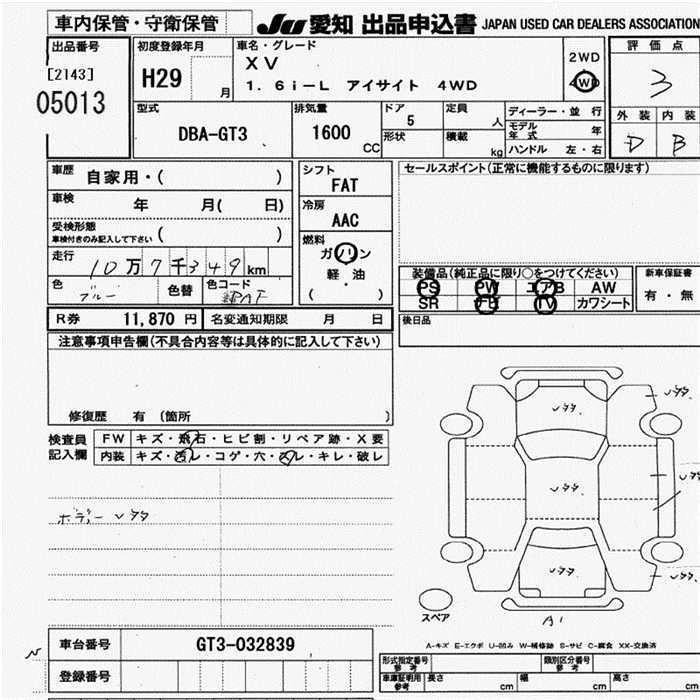 車内保管・守衛保管
JU 愛知 出品申込書 JAPAN USED CAR DEALERS ASSOCIATION
出品番号
[2143]
05013
初度登録年月
H29
月
車名・グレード
XV
1.6i-L アイサイト 4WD
2WD
4WD
評価点
3
外装 内装
D B
型式
DBA-GT3
排気量
1600
CC
ドア
5
形状
定員
人
積載
kg
ディーラー・並行
モデル年式 年
ハンドル 左・右
車歴
自家用・( )
車検
年 月( 日)
受検形態
車検付きのみ記入して下さい ( )
走行
10万7千349km
色
ブルー
色替
色コード
シフト
FAT
冷房
AAC
燃料
ガソリン
軽・油
( )
セールスポイント(正常に機能するものに限ります)
装備品(純正品に限り○をつけてください)
PS PW エアB AW
SR ナビ TV カワシート
新車保証書
有・無
後日品
R券 11,870 円
名変通知期限 月 日
注意事項申告欄(不具合内容等は具体的に記入して下さい)
修復歴 有 (箇所 )
検査員
記入欄
FW キズ・飛石・ヒビ割・リペア跡・X要
内装 キズ・汚レ・コゲ・穴・スレ・キレ・破レ
ボデー レタタ
レタタ
レタタ
レタタ
レタタ
レタタ
スペア
A1
A-キズ E-エクボ U-凹み W-補修跡 S-サビ C-腐食 XX-交換済
車台番号 GT3-032839
登録番号
型式指定番号
参考
類別区分番号
参考
車庫証明用
参考
長さ cm
幅 cm
高さ cm